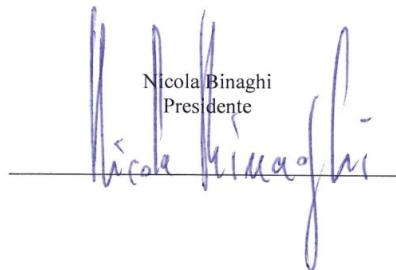 Nicola Binaghi
Presidente
Nicola Binaghi